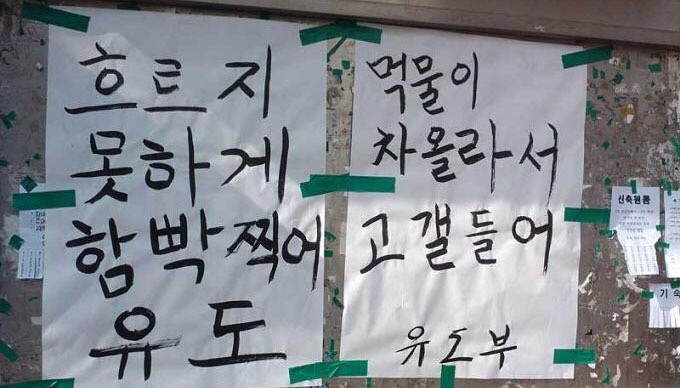 흐트지
못하게
함빡찍어
유도
먹물이
차올라서
고갤들어
유도부
신축원룸
기숙